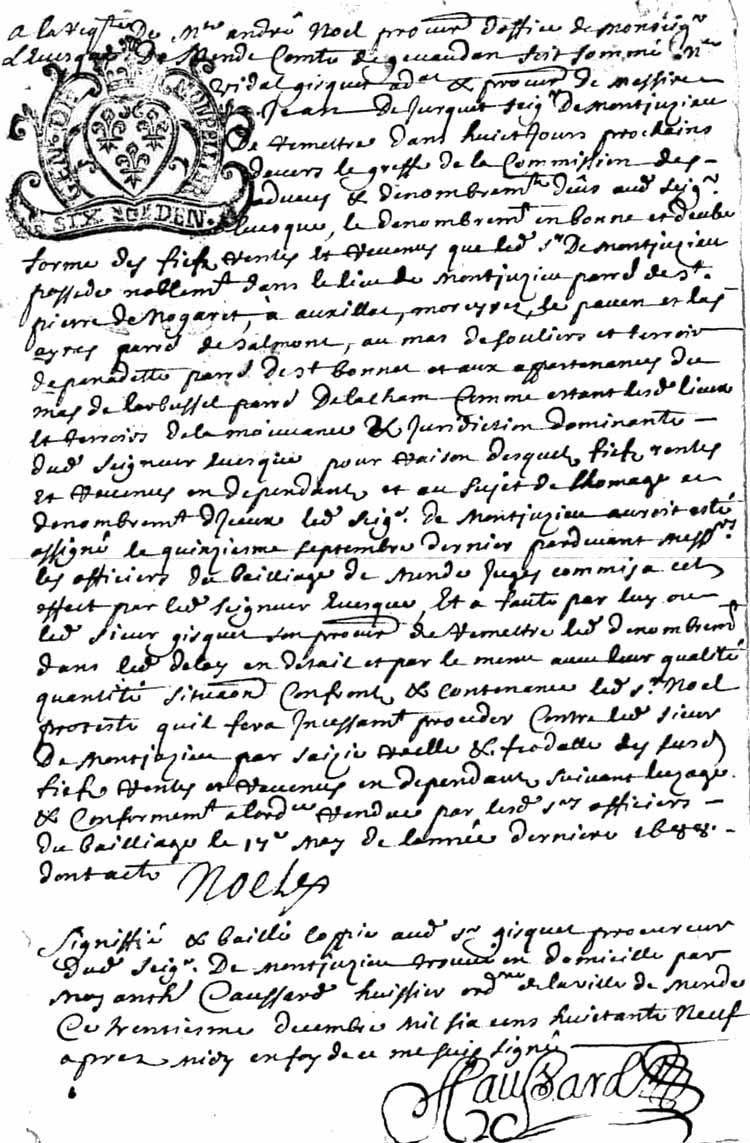 A la req^te De M^tre andré Noel procur^r d'office de Monseig^r
L'Evesque De Mende Comte de gevaudan soit sommé M^re
vidal gisquet ad^at & procur^r de Messire
Jean De Jurquet seig^r De Montjuzieu
De remettre dans huict Jours prochains
devers le greffe de la Commission des
adveus & denombrem^ts deüs aud^t seig^r
Evesque, le denombrem^t en bonne et deube
GEN. DE MONTPELLIER
SIX DEN.
forme des fiefs Rentes et Revenus que led^t s^r De Montjuzieu
possede noblem^t dans le lieu de Montjuzieu parr^e de s^t
pierre de Nogaret, à auxillac, moreyret, le paven et las
ayres parr^e de salmont, au mas de souliers et terroir
de panadette parr^e de s^t bonnet et aux appartenances du
mas de larbussel parr^e De la cham Comme estant lesd^s lieux
et terroirs de la mouvance & Juridiction dominante
dud^t seigneur Evesque pour Raison desquels fiefs rentes
et Revenus en dependants et au sujet de l'homage et
denombrem^t D'Iceux led^t seig^r de Montjuzieu auroit esté
assigné le quinziesme septembre dernier pardevant mess^rs
les officiers du bailliage de Mende Juges commis a cet
effect par led^t seigneur Evesque, Et a faute par luy ou
led^t sieur gisquet son procur^r de remettre led^t denombrem^t
dans led^t delay en detail et par le menu avec leur qualité
quantité situaon Confronts & contenance led^t s^r Noel
proteste qu'il fera Incessam^t proceder Contre led^t sieur
De Montjuzieu par saizie reelle & feodalle des susd^s
fiefs Rentes et Revenus en dependants suivant luzage
& Conformem^t a l'ord^ce Rendue par lesd^s s^rs officiers
du bailliage le 17^e May de l'année derniere 1688.
dont acte Noel
Signiffié & baillé Coppie aud^t s^r gisquet procureur
dud^t seig^r De Montjuzieu trouvé en domicille par
Moy anth^e Caussard huissier ord^re de la ville de Mende
Ce trentiesme decembre Mil six cens huictante Neuf
aprez midy en foy de ce me suis signé
Caussard